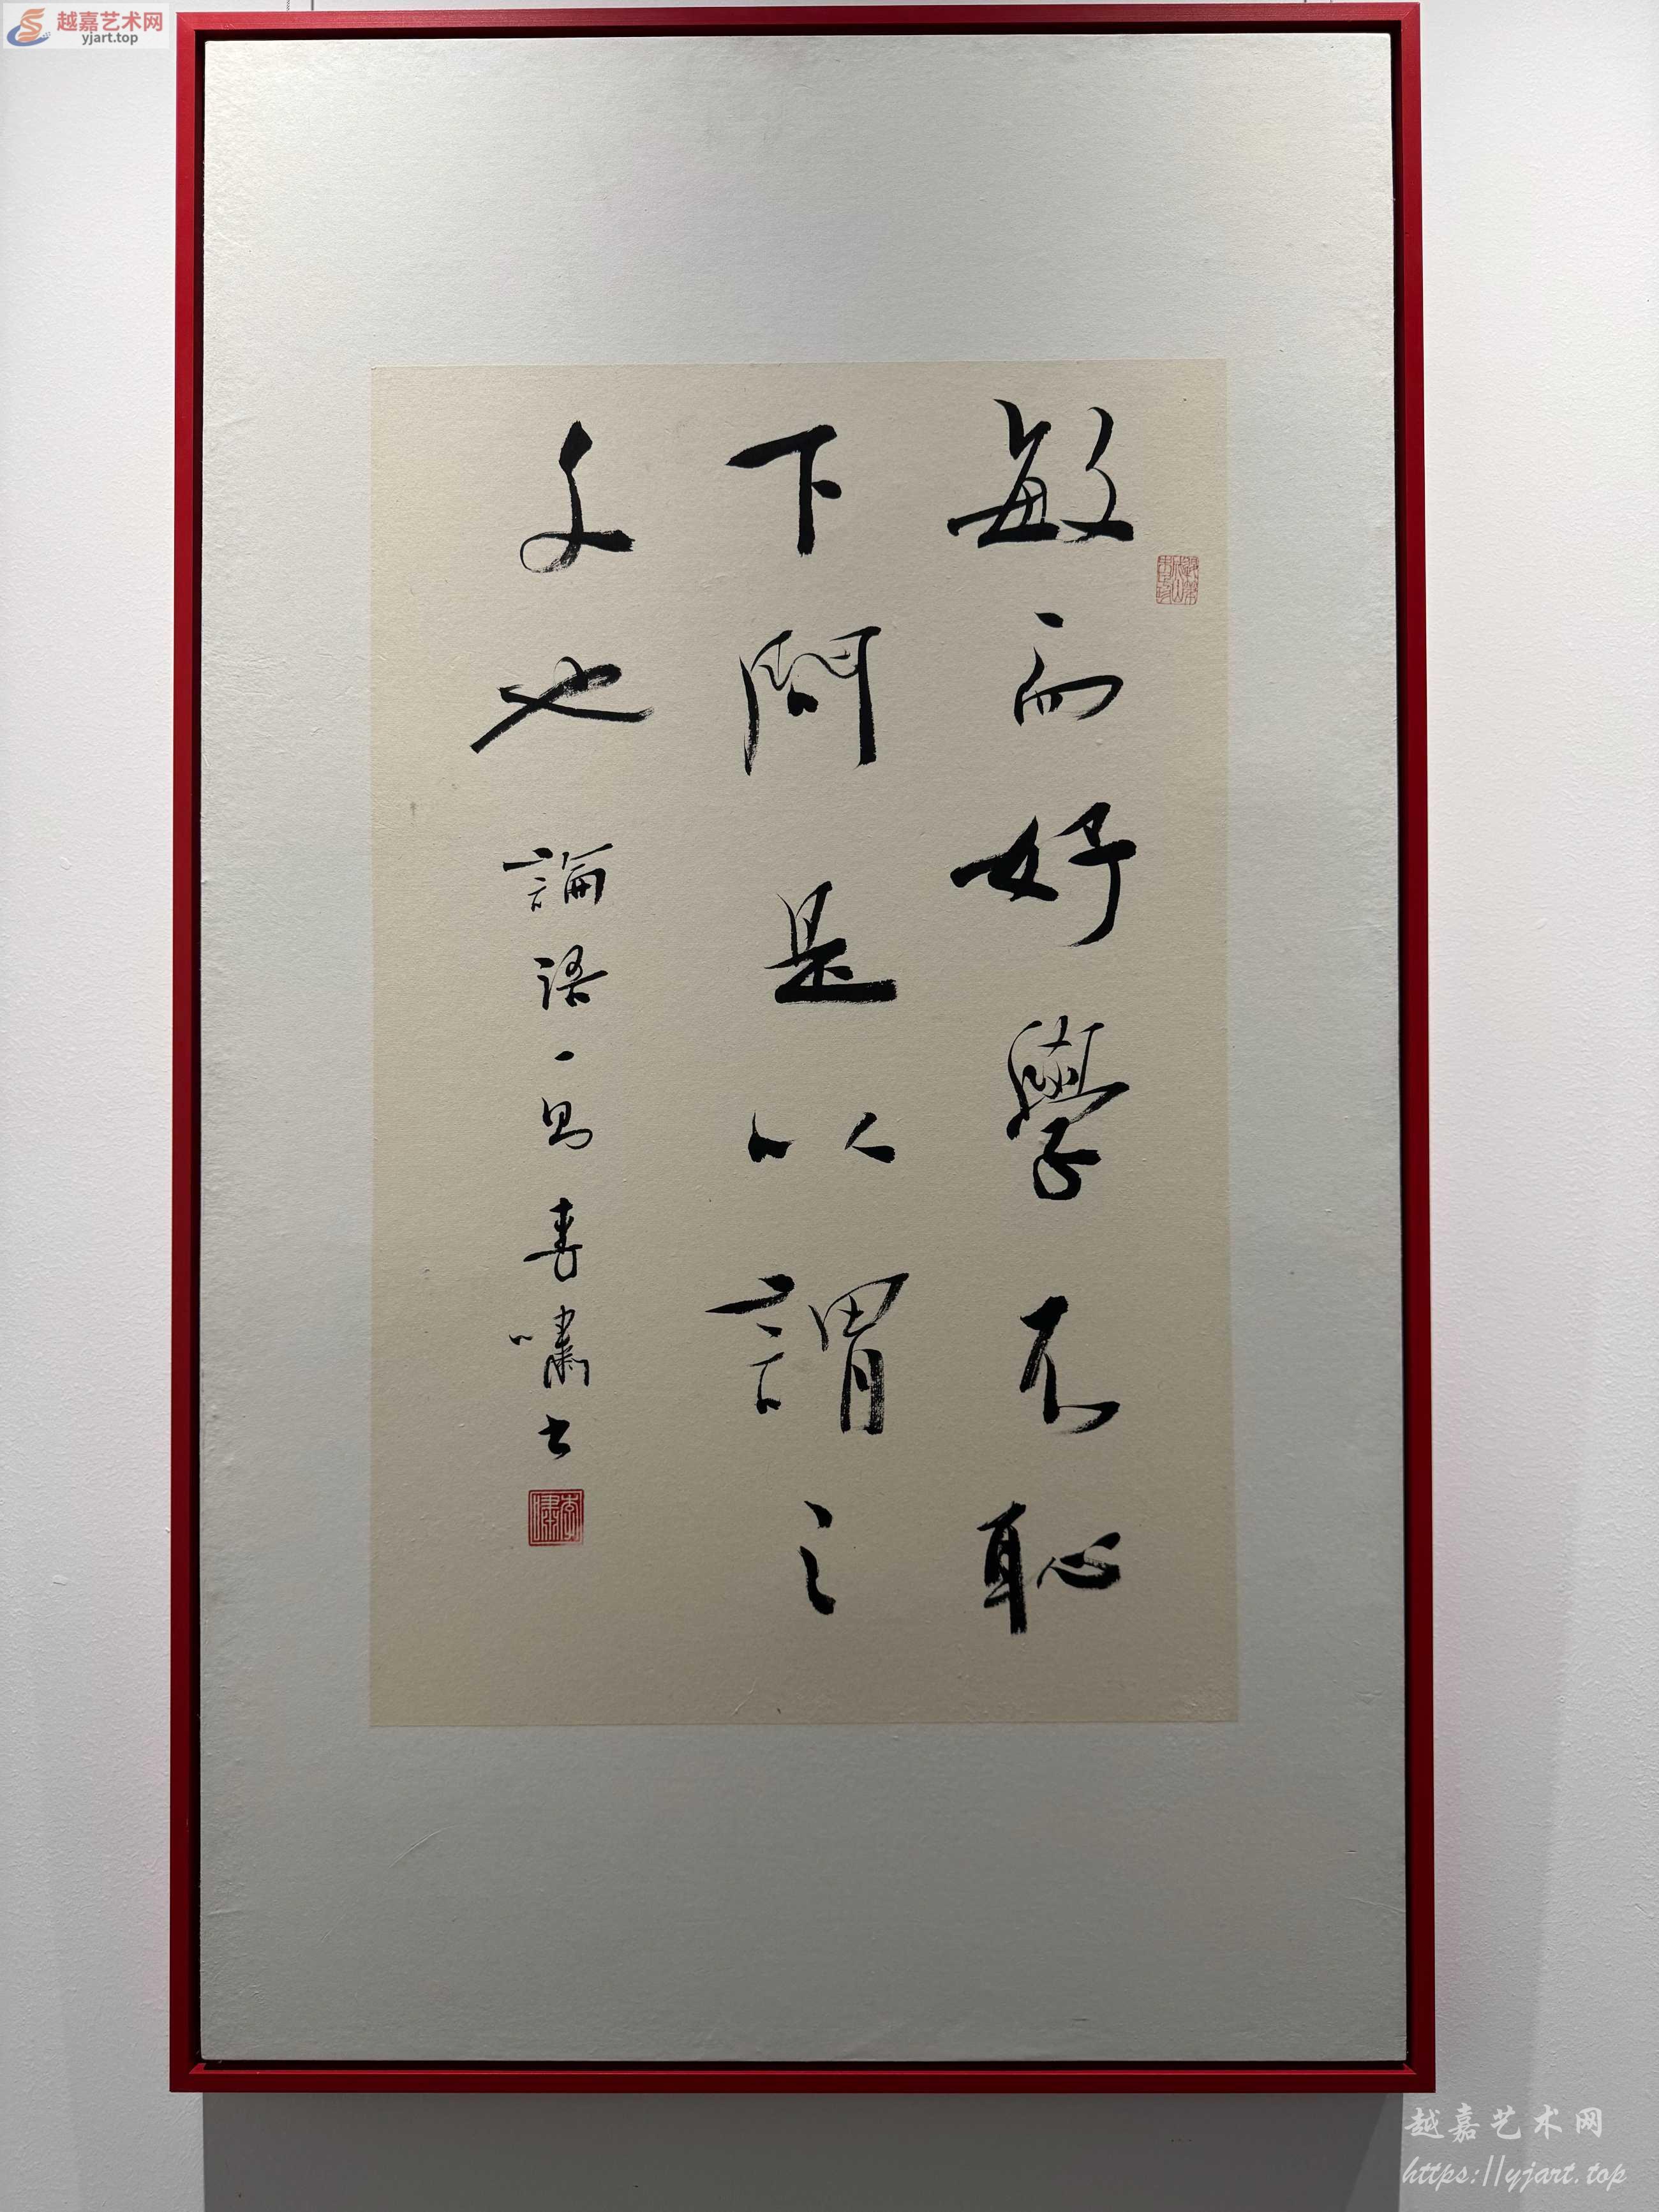 越嘉艺术网
yjart.top
敏而好學不恥
下問是以謂之
文也
論語一句 春嘯書
越嘉艺术网
https://yjart.top